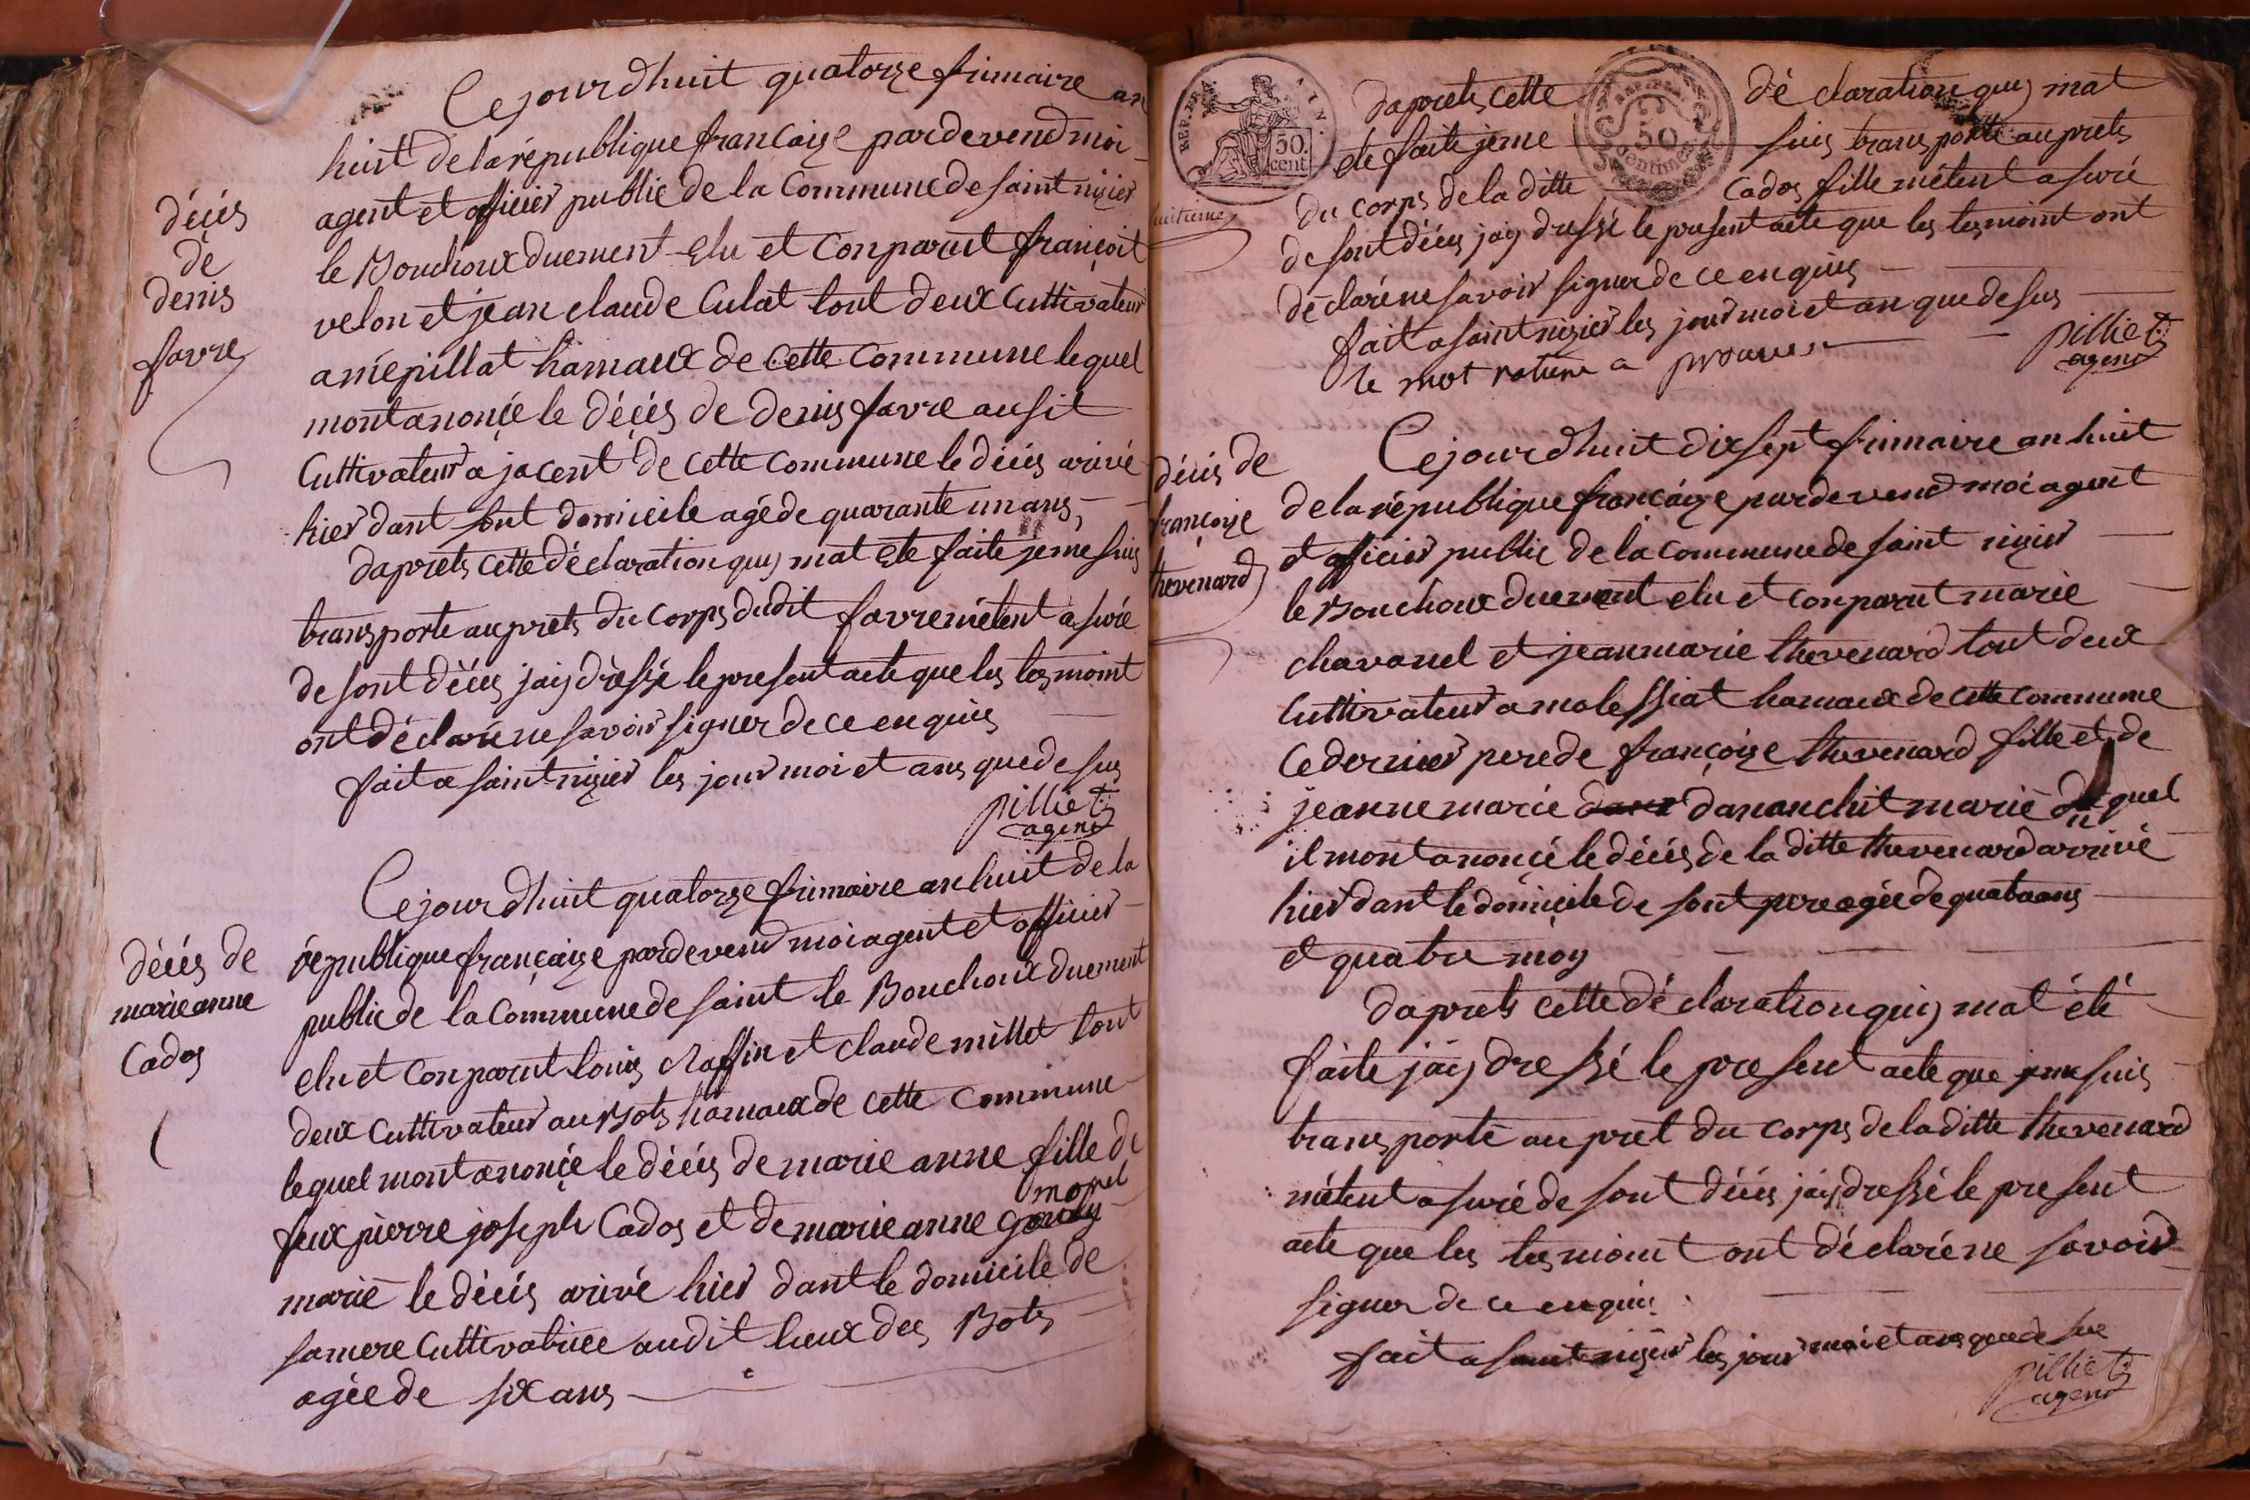 Cejourdhuit quatorze frimaire an
huit de la république francaize pardevend moi
agent et officier public de la Commune de saint nizier
le Bouchoux duement Elu et Conparut françoit
velon et jean claude Culat tout deux Cuttivateur
a mépillat hamaux de cette Commune lequel
mont anonçé le décés de denis favre ausit
Cuttivateur a jacent de cette commune le décés arivé
hier dant sont domicile agé de quarante un ans,
daprets cette déclaration quiy mat ete faite je me suis
transporte auprets du Corps dudit favre métent asuré
de sont décés jaiy dressé le present acte que les tesmoint
ont déclaré ne savoir signer de ce enquis
fait a saint nizier les jour moi et ans que desus
pilliet
agent
décés
de
denis
favre
Cejourdhuit quatorze frimaire an huit de la
république françaize pardevend moi agent et officier
public de la Commune de saint le Bouchoux duement
elu et Conparut louis Raffin et claude millet tout
deux Cuttivateur au Bots hamaux de cette Commune
lequel mont anonçé le décés de marie anne fille de
feux pierre joseph Cados et de marie anne
morel
marié le décés arivé hier dant le domicile de
samere Cuttivatrice audit lieux des Bots
agée de six ans
décés de
marie anne
Cados
daprets cette déclaration quiy mat
ete faite jeme suis transporte auprets
du corps de la ditte Cados fille métent asuré
de sont décés jaiy dressé le present acte que les tesmoint ont
déclaré ne savoir signer de ce enquis
fait a saint nizier les jour moi et an que desus
le mot rature a prouver
pilliet
agent
huitieme
REP. FRA.
50.
cent
50
centimes
Cejourdhuit dix sept frimaire an huit
de la république françaize pardevend moi agent
et officier public de la commune de saint nizier
le Bouchoux duement elu et conparut marie
chavanel et jean marie thevenard tout deux
Cuttivateur a molessiat hamaux de cette commune
ce dernier pere de françoize thevenard fille et de
jeanne marie dananchit marié duquel
il mont anonçé le décés de la ditte thevenard arrivé
hier dant le domicile de sont pere agée de quatre ans
et quatre moy
daprets cette déclaration quiy mat été
faite jaiy dressé le present acte que jeme suis
transporté au pret du corps de la ditte thevenard
métent asuré de sont décés jaiy dressé le present
acte que les tesmoint ont déclaré ne savoir
signer de ce enquis
fait a saint nizier les jour moi et ans que desus
pilliet
agent
décés de
françoize
thevenard